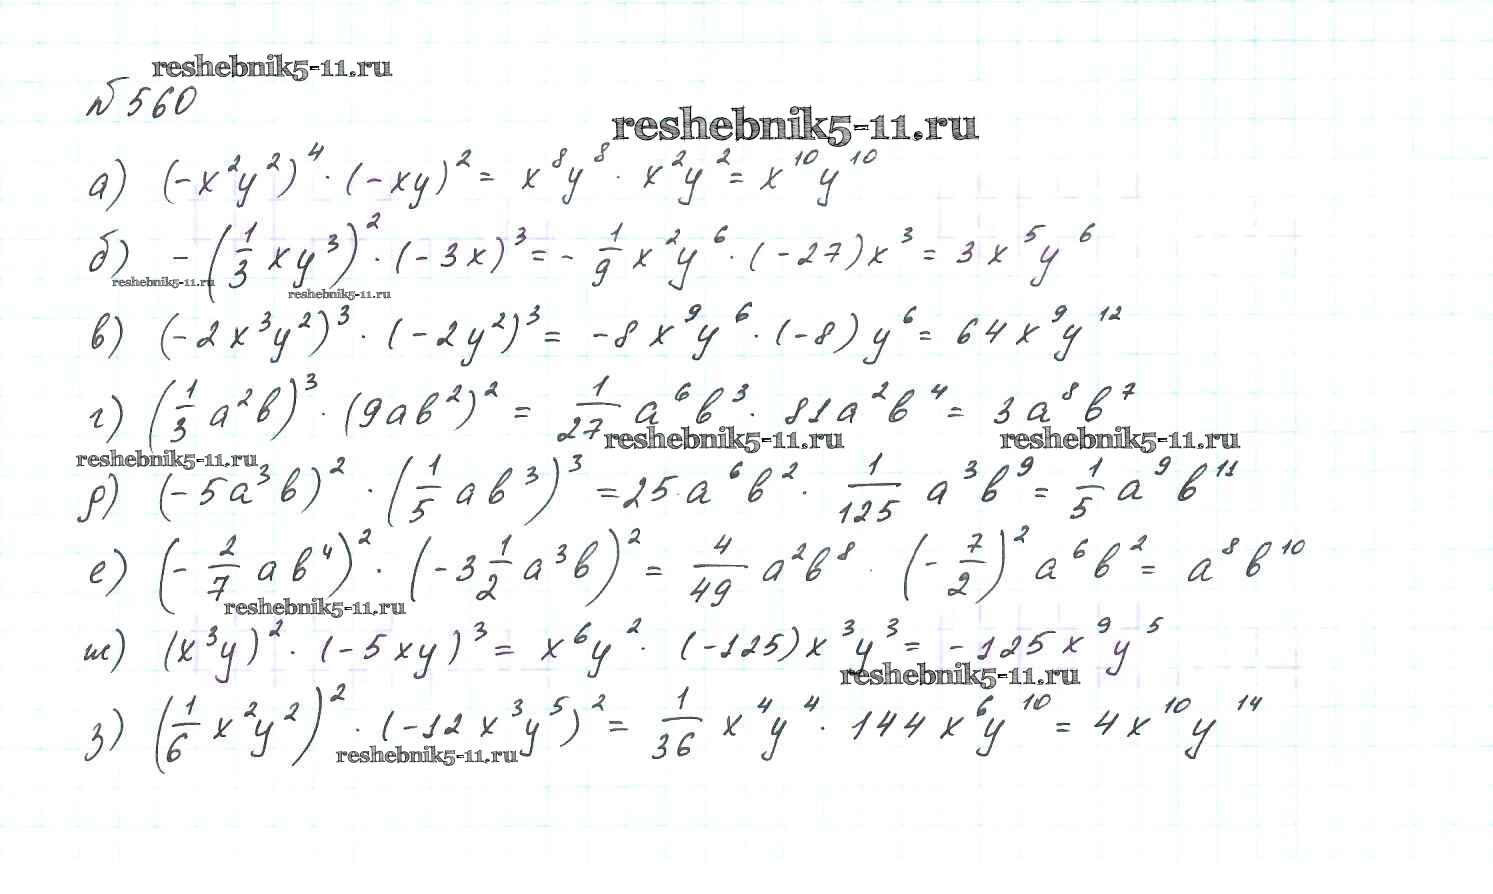 reshebnik5-11.ru
№560
reshebnik5-11.ru
а) (-x²y²)⁴ · (-xy)² = x⁸y⁸ · x²y² = x¹⁰y¹⁰
б) -(1/3 xy³)² · (-3x)³ = - 1/9 x²y⁶ · (-27)x³ = 3x⁵y⁶
reshebnik5-11.ru
reshebnik5-11.ru
в) (-2x³y²)³ · (-2y²)³ = -8x⁹y⁶ · (-8)y⁶ = 64x⁹y¹²
г) (1/3 a²b)³ · (9ab²)² = 1/27 a⁶b³ · 81a²b⁴ = 3a⁸b⁷
reshebnik5-11.ru reshebnik5-11.ru
reshebnik5-11.ru
д) (-5a³b)² · (1/5 ab³)³ = 25·a⁶b² · 1/125 a³b⁹ = 1/5 a⁹b¹¹
е) (-2/7 ab⁴)² · (-3 1/2 a³b)² = 4/49 a²b⁸ · (-7/2)² a⁶b² = a⁸b¹⁰
reshebnik5-11.ru
ж) (x³y)² · (-5xy)³ = x⁶y² · (-125)x³y³ = -125x⁹y⁵
reshebnik5-11.ru
з) (1/6 x²y²)² · (-12x³y⁵)² = 1/36 x⁴y⁴ · 144x⁶y¹⁰ = 4x¹⁰y¹⁴
reshebnik5-11.ru